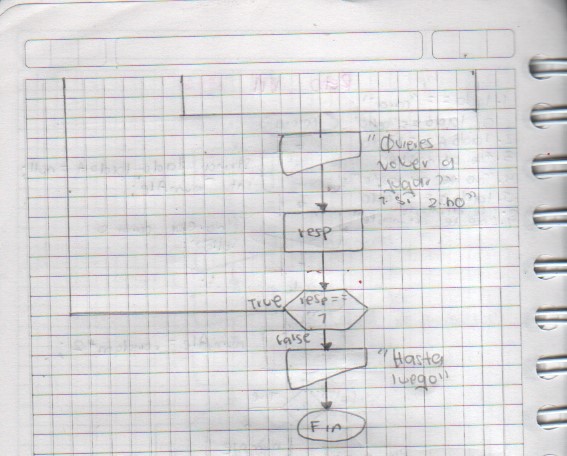 "Quieres
volver a
jugar?
1. si 2. no"
resp
True
resp ==
1
false
"Hasta
luego"
Fin